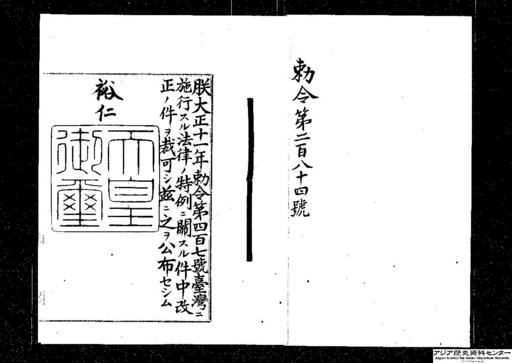 勅令第二百八十四號
朕大正十一年勅令第四百七號臺灣ニ
施行スル法律ノ特例ニ關スル件中改
正ノ件ヲ裁可シ茲ニ之ヲ公布セシム
裕仁
天皇
御璽
アジア歴史資料センター
Japan Center for Asian Historical Records